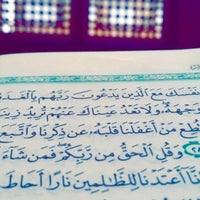 نَفْسَكَ مَعَ ٱلَّذِينَ يَدْعُونَ رَبَّهُم بِٱلْغَدَ
وَجْهَهُۥ وَلَا تَعْدُ عَيْنَاكَ عَنْهُمْ تُرِيدُ زِينَ
تُطِعْ مَنْ أَغْفَلْنَا قَلْبَهُۥ عَن ذِكْرِنَا وَٱتَّبَعَ
٢٨ وَقُلِ ٱلْحَقُّ مِن رَّبِّكُمْ فَمَن شَآءَ
إِنَّآ أَعْتَدْنَا لِلظَّٰلِمِينَ نَارًا أَحَاطَ